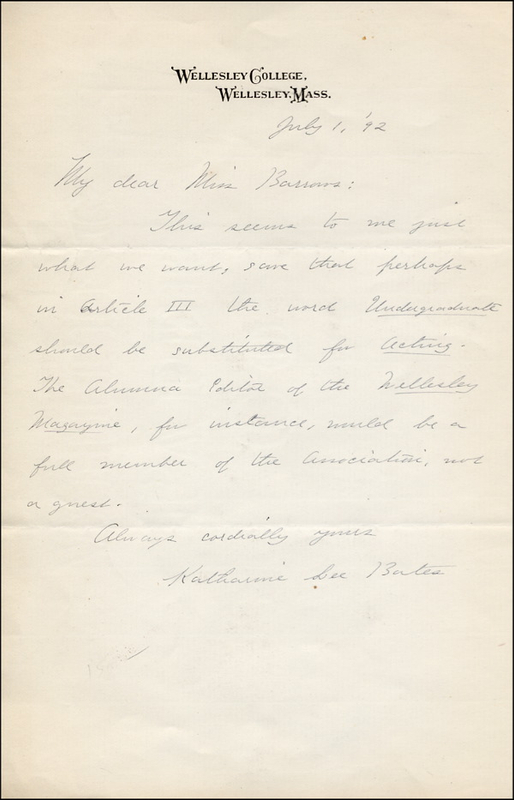 WELLESLEY COLLEGE,
WELLESLEY, MASS.
July 1, '92
My dear Miss Barrows:
This seems to me just
what we want, save that perhaps
in Article III the word Undergraduate
should be substituted for Acting.
The Alumna Editor of the Wellesley
Magazine, for instance, would be a
full member of the Association, not
a guest.
Always cordially yours
Katharine Lee Bates